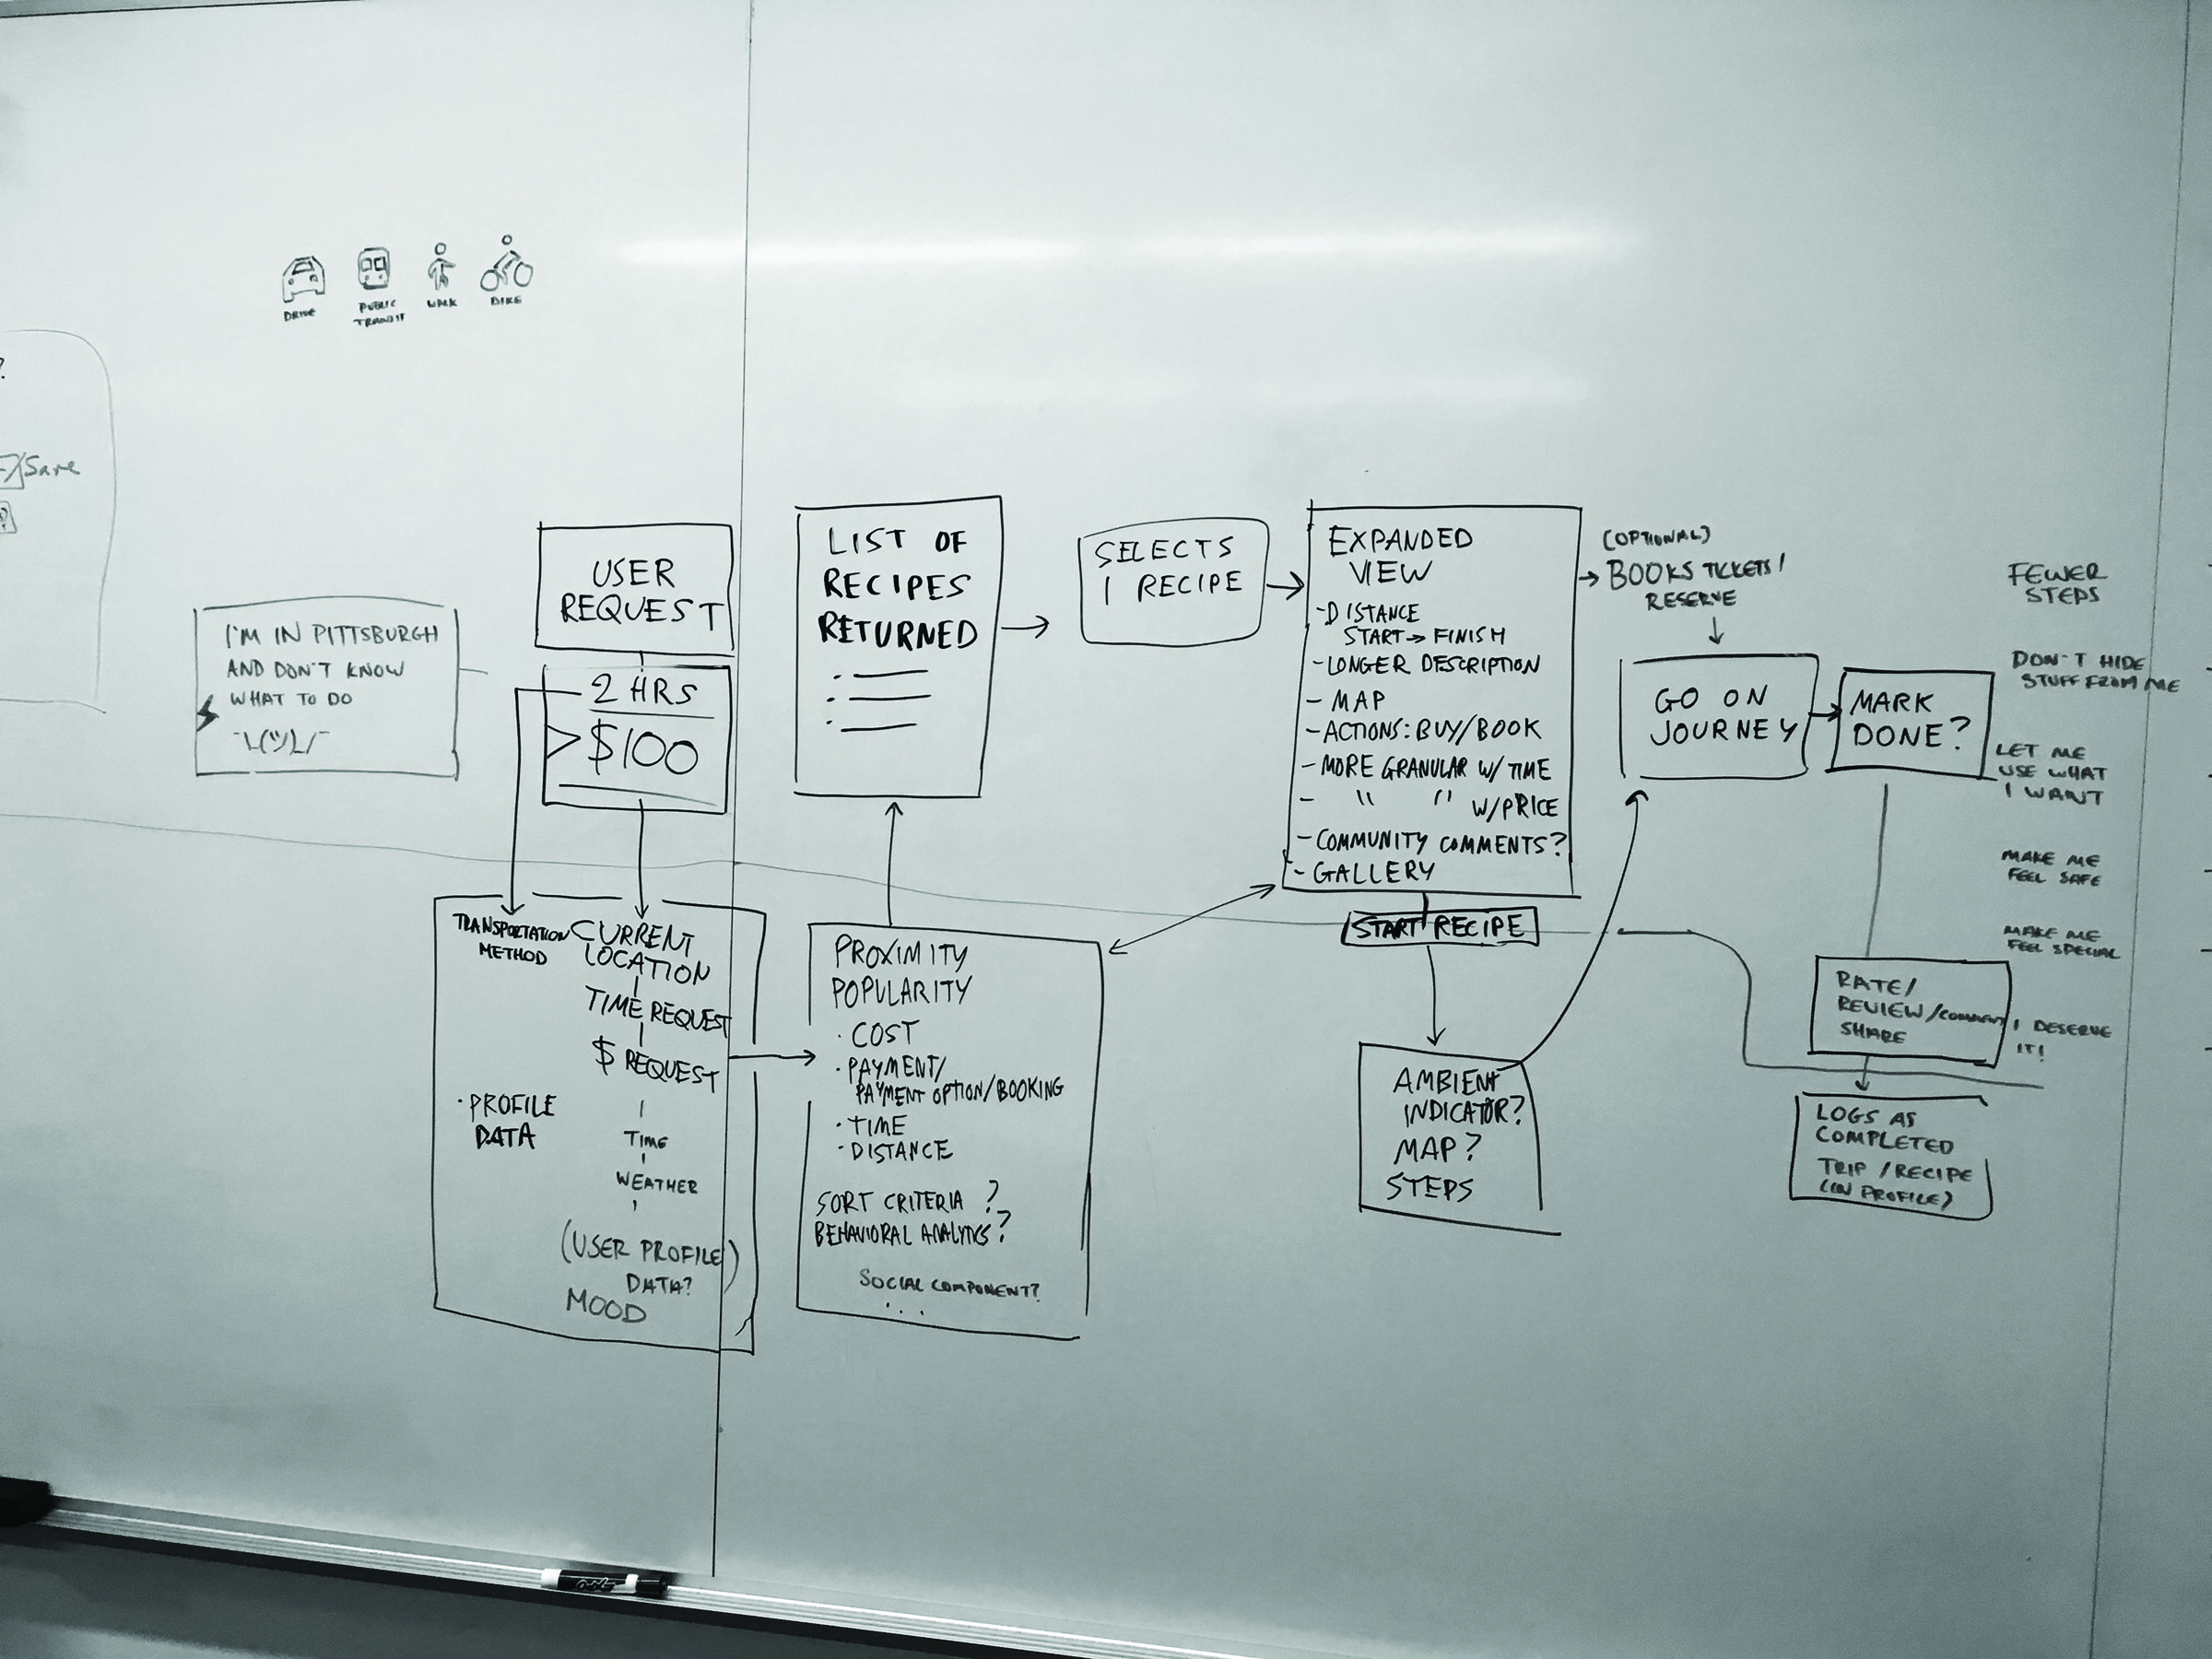 DRIVE
PUBLIC
TRANSIT
WALK
BIKE
?
/Save
?
I'M IN PITTSBURGH
AND DON'T KNOW
WHAT TO DO
¯\_(ツ)_/¯
USER
REQUEST
2 HRS
>$100
TRANSPORTATION
METHOD
CURRENT
LOCATION
TIME REQUEST
$ REQUEST
· PROFILE
DATA
TIME
WEATHER
(USER PROFILE)
DATA?
MOOD
LIST OF
RECIPES
RETURNED
PROXIMITY
POPULARITY
· COST
· PAYMENT/
PAYMENT OPTION/BOOKING
· TIME
· DISTANCE
SORT CRITERIA ?
BEHAVIORAL ANALYTICS?
SOCIAL COMPONENT?
...
SELECTS
1 RECIPE
EXPANDED
VIEW
- DISTANCE
START → FINISH
- LONGER DESCRIPTION
- MAP
- ACTIONS: BUY/BOOK
- MORE GRANULAR W/ TIME
- " " W/PRICE
- COMMUNITY COMMENTS?
- GALLERY
START RECIPE
AMBIENT
INDICATOR?
MAP?
STEPS
(OPTIONAL)
BOOKS TICKETS/
RESERVE
GO ON
JOURNEY
MARK
DONE?
RATE/
REVIEW/COMMENT
SHARE
LOGS AS
COMPLETED
TRIP/RECIPE
(IN PROFILE)
FEWER
STEPS
DON'T HIDE
STUFF FROM ME
LET ME
USE WHAT
I WANT
MAKE ME
FEEL SAFE
MAKE ME
FEEL SPECIAL
I DESERVE
IT!